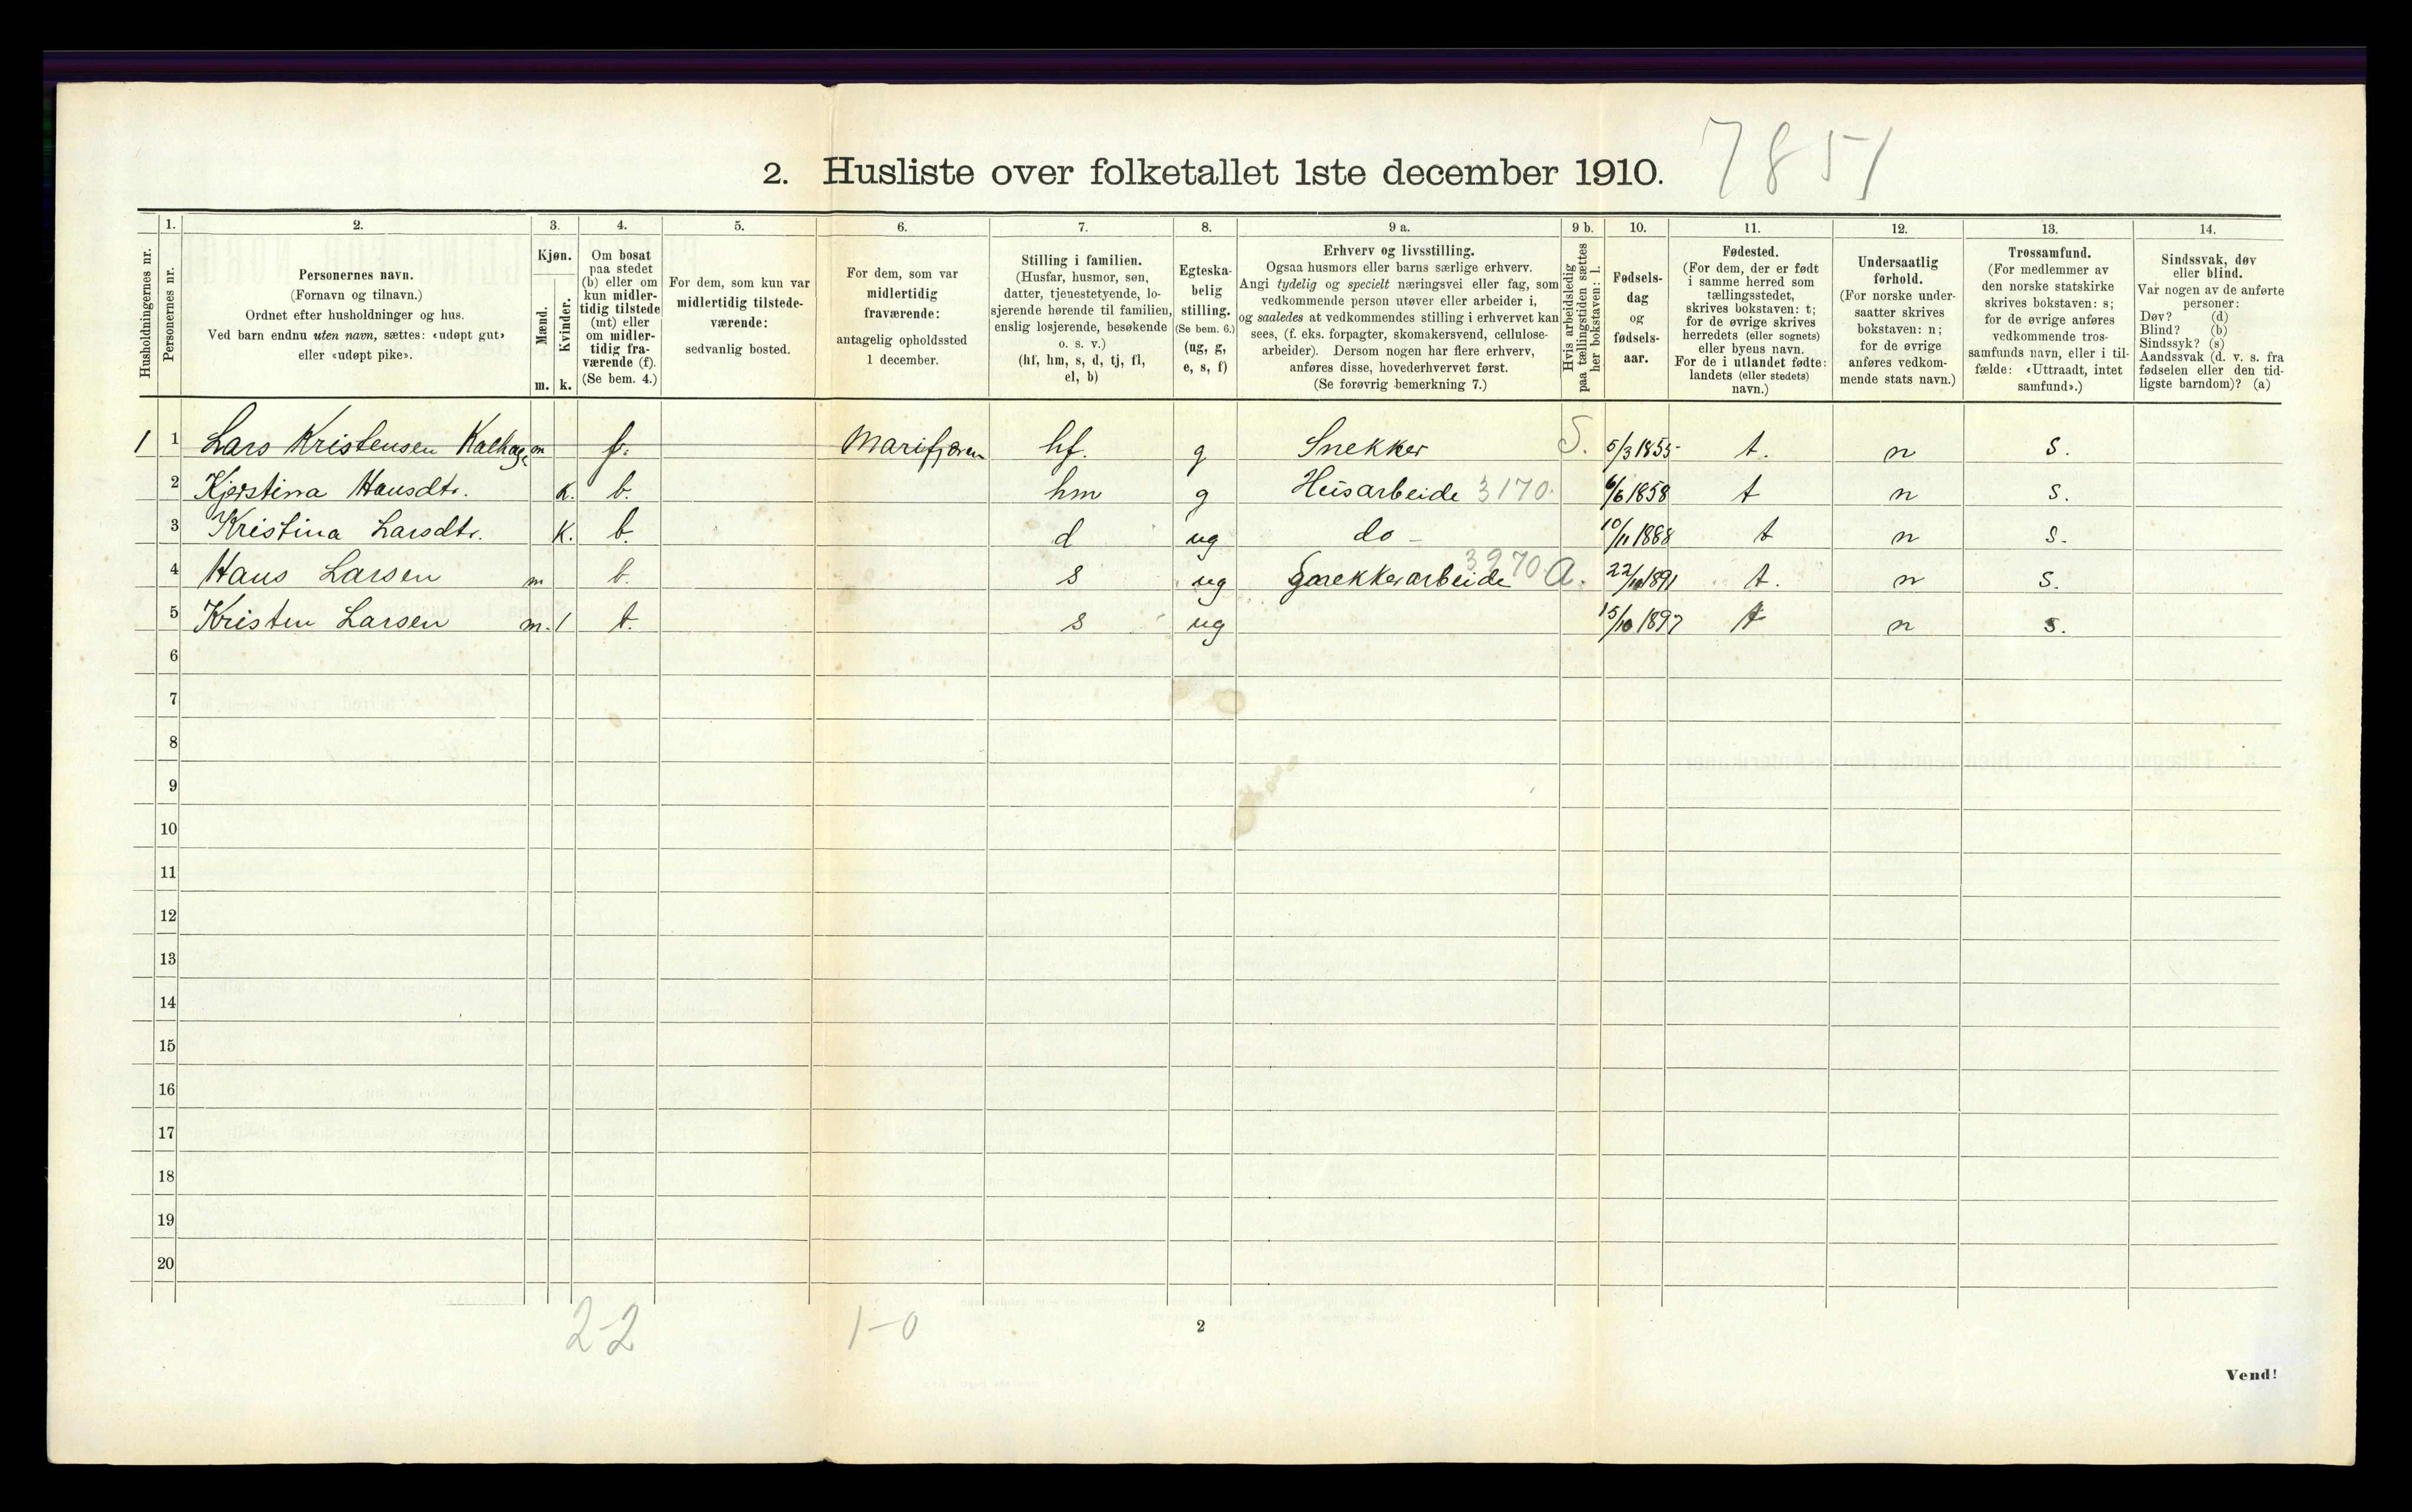 2. Husliste over folketallet 1ste december 1910. 7851
1. 2. 3. 4. 5. 6. 7. 8. 9 a. 9 b. 10. 11. 12. 13. 14.
Husholdningernes nr.
Personernes nr.
Personernes navn.
(Fornavn og tilnavn.)
Ordnet efter husholdninger og hus.
Ved barn endnu uten navn, sættes: «udøpt gut»
eller «udøpt pike».
Kjøn.
Mænd.
Kvinder.
m. k.
Om bosat
paa stedet
(b) eller om
kun midler-
tidig tilstede
(mt) eller
om midler-
tidig fra-
værende (f).
(Se bem. 4.)
For dem, som kun var
midlertidig tilstede-
værende:
sedvanlig bosted.
For dem, som var
midlertidig
fraværende:
antagelig opholdssted
1 december.
Stilling i familien.
(Husfar, husmor, søn,
datter, tjenestetyende, lo-
sjerende hørende til familien,
enslig losjerende, besøkende
o. s. v.)
(hf, hm, s, d, tj, fl,
el, b)
Egteska-
belig
stilling.
(Se bem. 6.)
(ug, g,
e, s, f)
Erhverv og livsstilling.
Ogsaa husmors eller barns særlige erhverv.
Angi tydelig og specielt næringsvei eller fag, som
vedkommende person utøver eller arbeider i,
og saaledes at vedkommendes stilling i erhvervet kan
sees, (f. eks. forpagter, skomakersvend, cellulose-
arbeider). Dersom nogen har flere erhverv,
anføres disse, hovederhvervet først.
(Se forøvrig bemerkning 7.)
Hvis arbeidsledig
paa tællingstiden sættes
her bokstaven: l.
Fødsels-
dag
og
fødsels-
aar.
Fødested.
(For dem, der er født
i samme herred som
tællingsstedet,
skrives bokstaven: t;
for de øvrige skrives
herredets (eller sognets)
eller byens navn.
For de i utlandet fødte:
landets (eller stedets)
navn.)
Undersaatlig
forhold.
(For norske under-
saatter skrives
bokstaven: n;
for de øvrige
anføres vedkom-
mende stats navn.)
Trossamfund.
(For medlemmer av
den norske statskirke
skrives bokstaven: s;
for de øvrige anføres
vedkommende tros-
samfunds navn, eller i til-
fælde: «Uttraadt, intet
samfund».)
Sindssvak, døv
eller blind.
Var nogen av de anførte
personer:
Døv? (d)
Blind? (b)
Sindssyk? (s)
Aandssvak (d. v. s. fra
fødselen eller den tid-
ligste barndom)? (a)
1 1 Lars Kristensen Kalhage m f. Marifjæren hf. g Snekker S. 5/3 1855 t. n s.
2 Kjerstina Hansdtr. k. b. hm g Husarbeide 3170. 6/6 1858 t n s.
3 Kristina Larsdtr. k. b. d ug do - 10/11 1888 t n s.
4 Hans Larsen m b. s ug Snekkerarbeide 3970. A. 22/10 1891 t. n s.
5 Kristen Larsen m. 1 b. s ug 15/10 1897 t n s.
6
7
8
9
10
11
12
13
14
15
16
17
18
19
20
2-2 1-0
2
Vend!